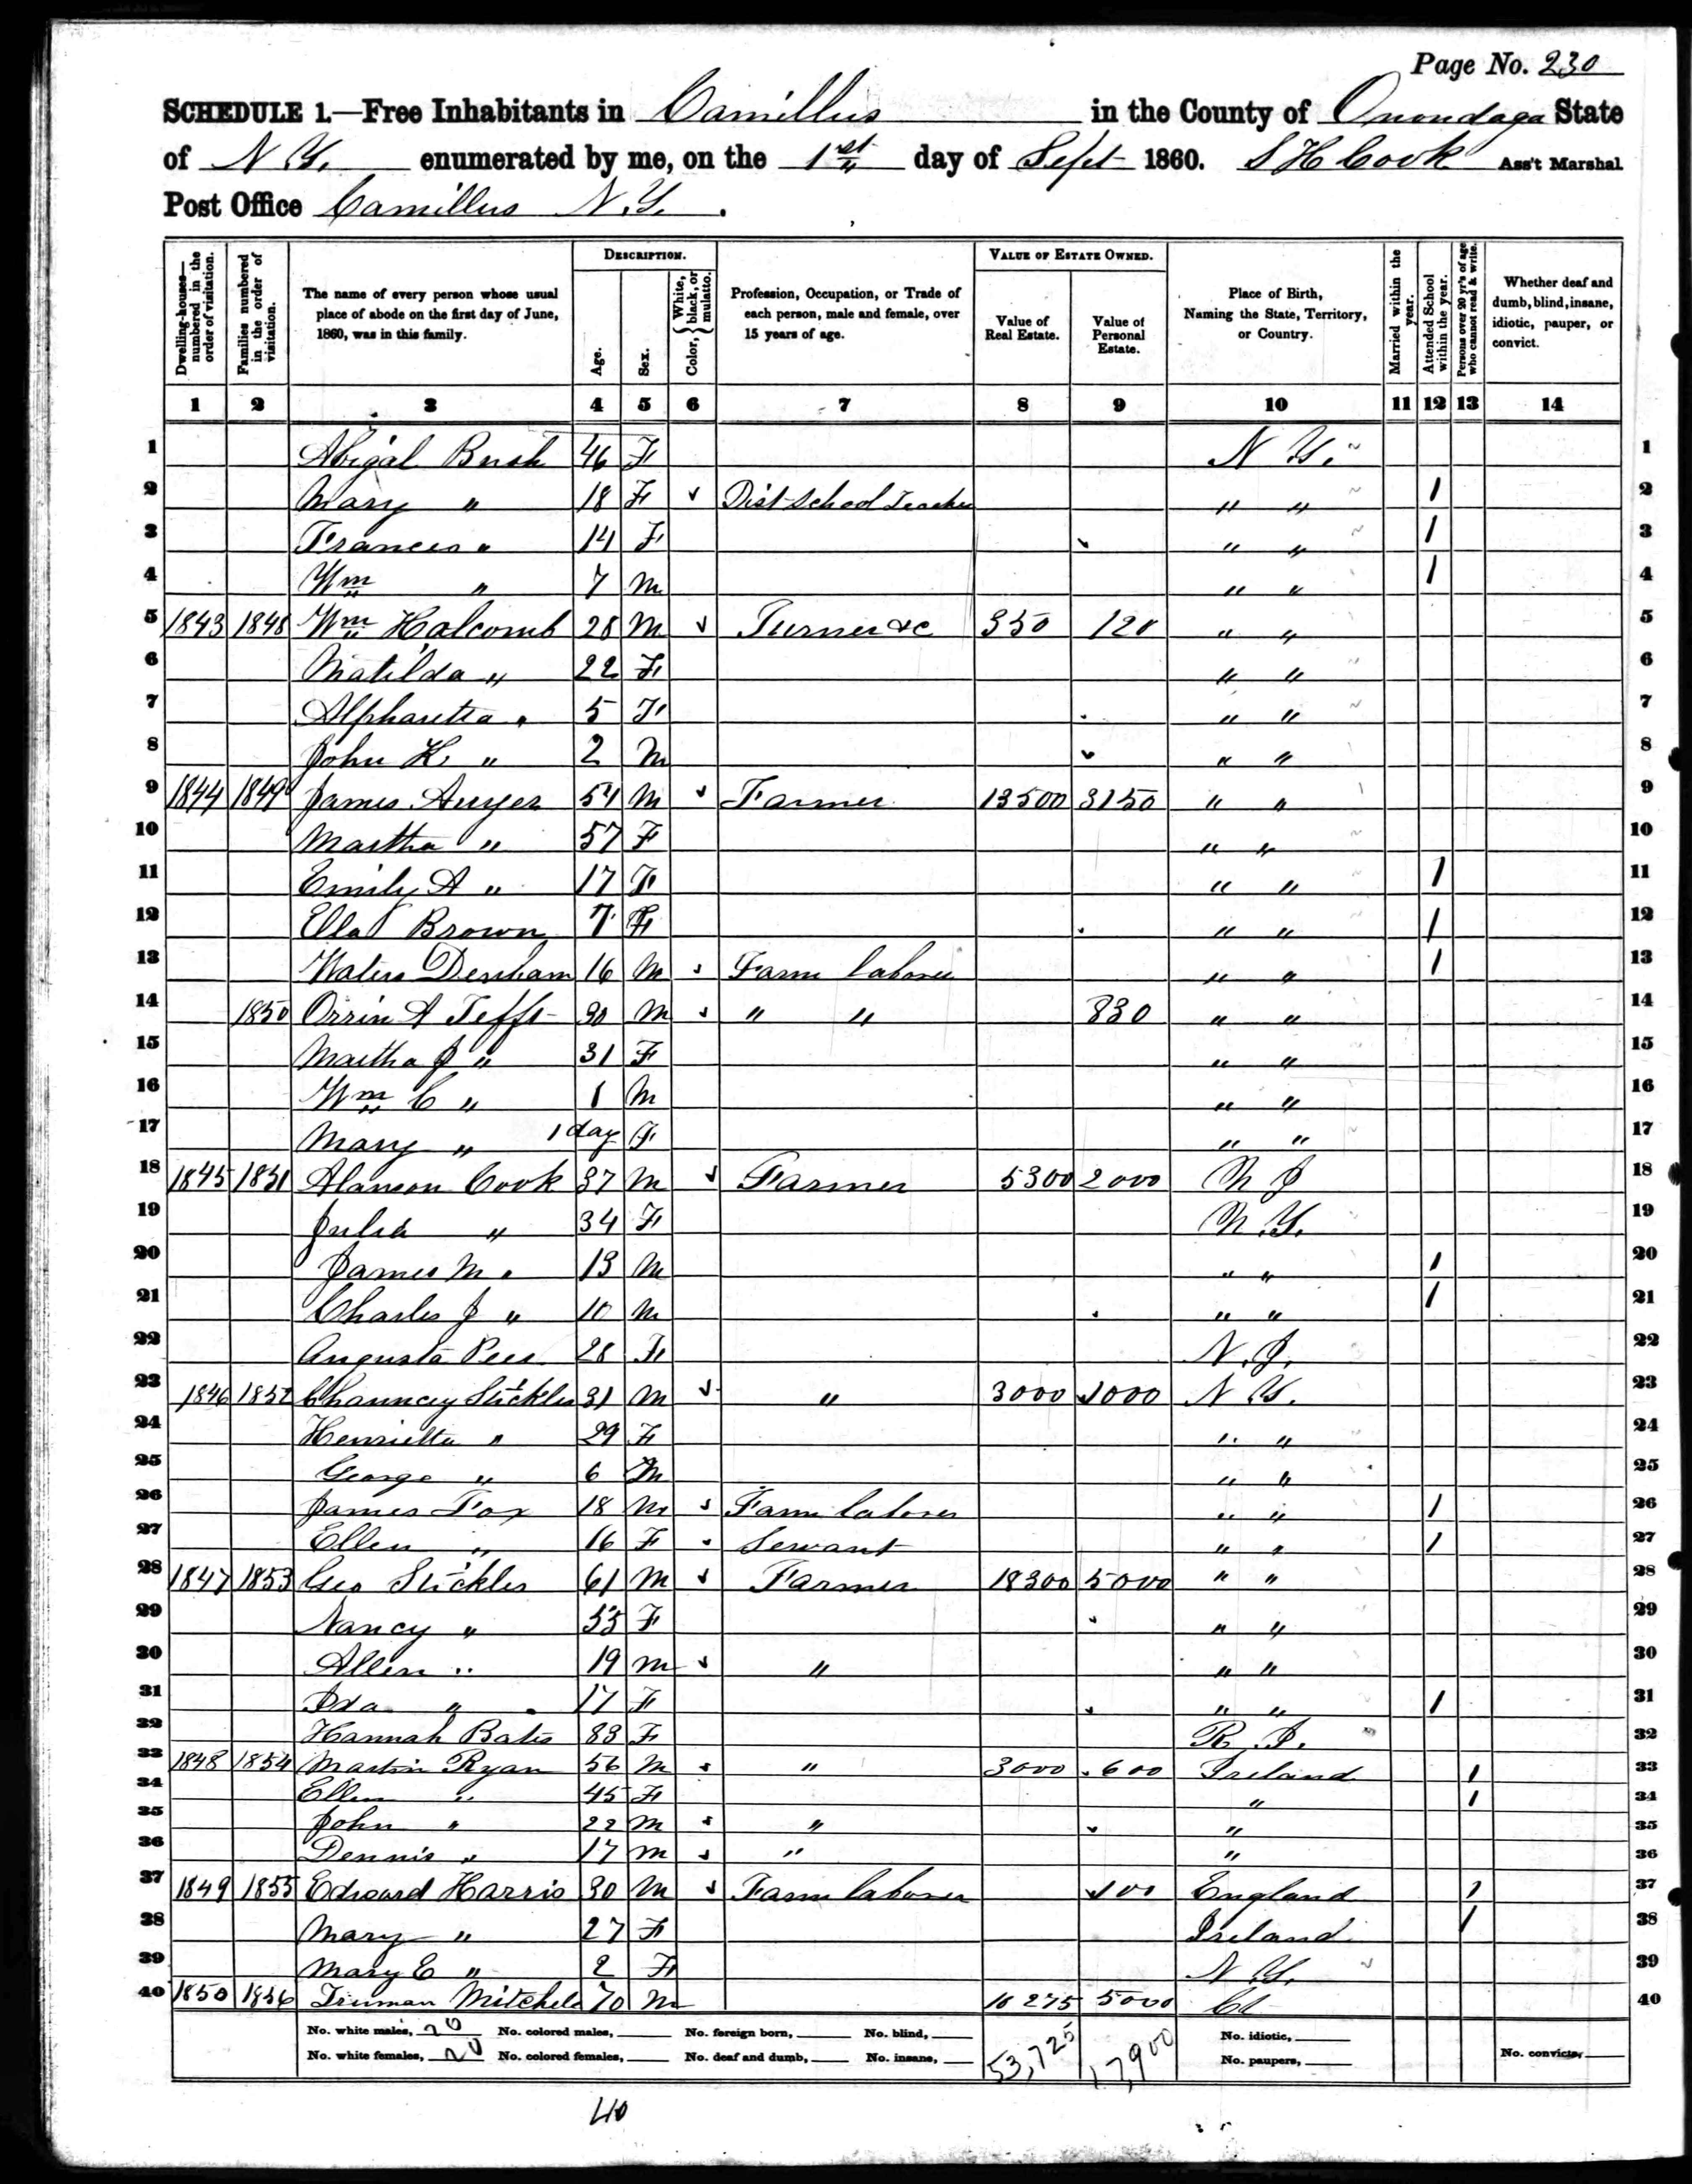 Page No. 230
SCHEDULE 1.—Free Inhabitants in Camillus in the County of Onondaga State
of N.Y. enumerated by me, on the 1st day of Sept 1860. S H Cook Ass't Marshal
Post Office Camillus N.Y.
DESCRIPTION. VALUE OF ESTATE OWNED.
Dwelling-houses—numbered in the order of visitation. Families numbered in the order of visitation. The name of every person whose usual place of abode on the first day of June, 1860, was in this family. Age. Sex. Color, { White, black, or mulatto. Profession, Occupation, or Trade of each person, male and female, over 15 years of age. Value of Real Estate. Value of Personal Estate. Place of Birth, Naming the State, Territory, or Country. Married within the year. Attended School within the year. Persons over 20 y'rs of age who cannot read & write. Whether deaf and dumb, blind, insane, idiotic, pauper, or convict.
1 2 3 4 5 6 7 8 9 10 11 12 13 14
1 Abigal Bush 46 F N.Y. 1
2 Mary " 18 F Dist School Teacher " " / 2
3 Frances " 14 F " " / 3
4 Wm " 7 M " " / 4
5 1843 1848 Wm Halcomb 28 M Turner &c 350 120 " " 5
6 Matilda " 22 F " " 6
7 Alpharetta " 5 F " " 7
8 John H. " 2 M " " 8
9 1844 1849 James Auyer 54 M Farmer 13500 3150 " " 9
10 Martha " 57 F " " 10
11 Emily A " 17 F " " / 11
12 Ella Brown 7 F " " / 12
13 Denham 16 M Farm laborer " " / 13
14 1850 Orrin A Tefft 30 M " " 830 " " 14
15 Martha J " 31 F " " 15
16 Wm C " 1 M " " 16
17 Mary " 1 day F " " 17
18 1845 1851 Alanson Cook 37 M Farmer 5300 2000 N J 18
19 Julia " 34 F N.Y. 19
20 James M " 13 M " " / 20
21 Charles J " 10 M " " / 21
22 Augusta 28 F N.J. 22
23 1846 1852 Chauncey Stickles 31 M " 3000 1000 N Y. 23
24 Henrietta " 29 F " " 24
25 George " 6 M " " 25
26 James Fox 18 M Farm laborer " " / 26
27 Ellen " 16 F Servant " " / 27
28 1847 1853 Geo Stickles 61 M Farmer 18300 5000 " " 28
29 Nancy " 55 F " " 29
30 Allen " 19 M " " " 30
31 Ida " 17 F " " / 31
32 Hannah Bates 83 F R.I. 32
33 1848 1854 Martin Ryan 56 M " 3000 600 Ireland / 33
34 Ellen " 45 F " / 34
35 John " 22 M " " 35
36 Dennis " 17 M " " 36
37 1849 1855 Edward Harris 30 M Farm laborer 100 England / 37
38 Mary " 27 F Ireland / 38
39 Mary E " 2 F N Y. 39
40 1850 1856 Truman Mitchell 70 M 10 275 5000 Ct 40
No. white males, 20 No. colored males, No. foreign born, No. blind, 53,725 17,900 No. idiotic,
No. white females, 20 No. colored females, No. deaf and dumb, No. insane, No. paupers, No. convicts,
40